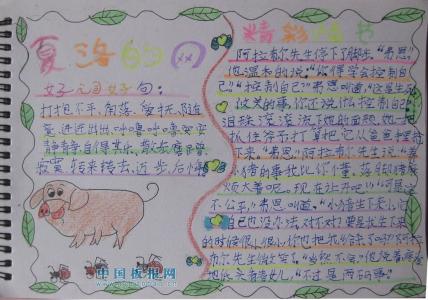 夏洛的网
好词好句:
打抱不平、角落、
进进出出、呼噜呼噜
静静自得其乐、
寂寞、转来转去、
精彩
阿拉布尔先生停下了脚步。“弗恩,”
他温和的说:“你得学会控制自己。”
“控制自己?”弗恩叫道,“这是生死
攸关的事,你还说什么控制自己!”
泪珠滚滚流下她的面颊,她一把
抓住斧子打算把它从爸爸手里抢
下来。“弗恩,”阿拉布尔先生说,“养
小猪的事我比你懂。落脚猪麻
烦大着呢。现在让开吧!”“可是
不公平,”弗恩叫道,“小猪生下来小,它
自己也没办法,对不对?要是我生下来
的时候很小很小,你也把我给杀了吗?”阿拉
布尔先生微笑了。“当然不会,”他说着
地低头看着女儿,“不过是两码事。”
中国板报网